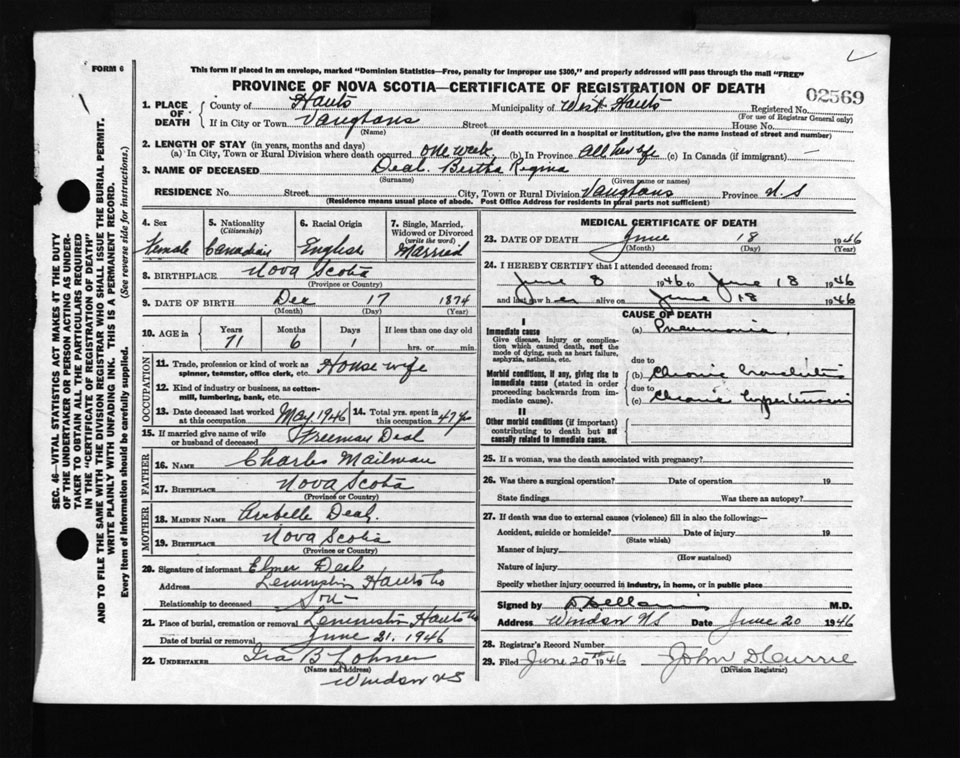 FORM 6
This form if placed in an envelope, marked "Dominion Statistics—Free, penalty for improper use $300," and properly addressed will pass through the mail "FREE"
PROVINCE OF NOVA SCOTIA—CERTIFICATE OF REGISTRATION OF DEATH
02569
1. PLACE OF DEATH
County of Hants Municipality of West Hants Registered No.
(For use of Registrar General only)
If in City or Town Vaughans Street House No.
(Name) (If death occurred in a hospital or institution, give the name instead of street and number)
2. LENGTH OF STAY (in years, months and days)
(a) In City, Town or Rural Division where death occurred one week (b) In Province all her life (c) In Canada (if immigrant) —
3. NAME OF DECEASED Deal. Bertha Regina
(Surname) (Given name or names)
RESIDENCE No. Street City, Town or Rural Division Vaughans Province N.S
(Residence means usual place of abode. Post Office Address for residents in rural parts not sufficient)
4. Sex
Female
5. Nationality
(Citizenship)
Canadian
6. Racial Origin
English
7. Single, Married, Widowed or Divorced
(write the word)
Married
8. BIRTHPLACE Nova Scotia
(Province or Country)
9. DATE OF BIRTH Dec 17 1874
(Month) (Day) (Year)
10. AGE in
Years Months Days If less than one day old
71 6 1 hrs. or min.
OCCUPATION
11. Trade, profession or kind of work as spinner, teamster, office clerk, etc. House wife
12. Kind of industry or business, as cotton-mill, lumbering, bank, etc.
13. Date deceased last worked at this occupation May 1946 14. Total yrs. spent in this occupation 47 yrs
15. If married give name of wife or husband of deceased Freeman Deal
FATHER
16. NAME Charles Mailman
17. BIRTHPLACE Nova Scotia
(Province or Country)
MOTHER
18. MAIDEN NAME Arabelle Deal.
19. BIRTHPLACE Nova Scotia
(Province or Country)
20. Signature of informant Elmer Deal
Address Leminster Hants Co
Relationship to deceased Son
21. Place of burial, cremation or removal Leminster Hants Co
Date of burial or removal June 21. 1946
22. UNDERTAKER Ira B Lohnes
(Name and Address)
Windsor N S
MEDICAL CERTIFICATE OF DEATH
23. DATE OF DEATH June 18 1946
(Month) (Day) (Year)
24. I HEREBY CERTIFY that I attended deceased from:
June 8 1946 to June 18 1946
and last saw her alive on June 18 1946
CAUSE OF DEATH
I
Immediate cause (a) Pneumonia
Give disease, injury or complication which caused death, not the mode of dying, such as heart failure, asphyxia, asthenia, etc.
due to
Morbid conditions, if any, giving rise to immediate cause (stated in order proceeding backwards from immediate cause).
(b) Chronic bronchitis
due to
(c) Chronic hypertension
II
Other morbid conditions (if important) contributing to death but not causally related to immediate cause.
25. If a woman, was the death associated with pregnancy?
26. Was there a surgical operation? Date of operation 19
State findings Was there an autopsy?
27. If death was due to external causes (violence) fill in also the following:—
Accident, suicide or homicide? Date of injury 19
(State which)
Manner of injury
(How sustained)
Nature of injury
Specify whether injury occurred in industry, in home, or in public place
Signed by M.D.
Address Windsor NS Date June 20 1946
28. Registrar's Record Number
29. Filed June 20th 1946 John D Currie
(Division Registrar)
SEC. 46—VITAL STATISTICS ACT MAKES IT THE DUTY
OF THE UNDERTAKER OR PERSON ACTING AS UNDER-
TAKER TO OBTAIN ALL THE PARTICULARS REQUIRED
IN THE "CERTIFICATE OF REGISTRATION OF DEATH"
AND TO FILE THE SAME WITH THE DIVISION REGISTRAR WHO SHALL ISSUE THE BURIAL PERMIT.
WRITE PLAINLY WITH UNFADING INK. THIS IS A PERMANENT RECORD.
Every item of information should be carefully supplied. (See reverse side for instructions.)